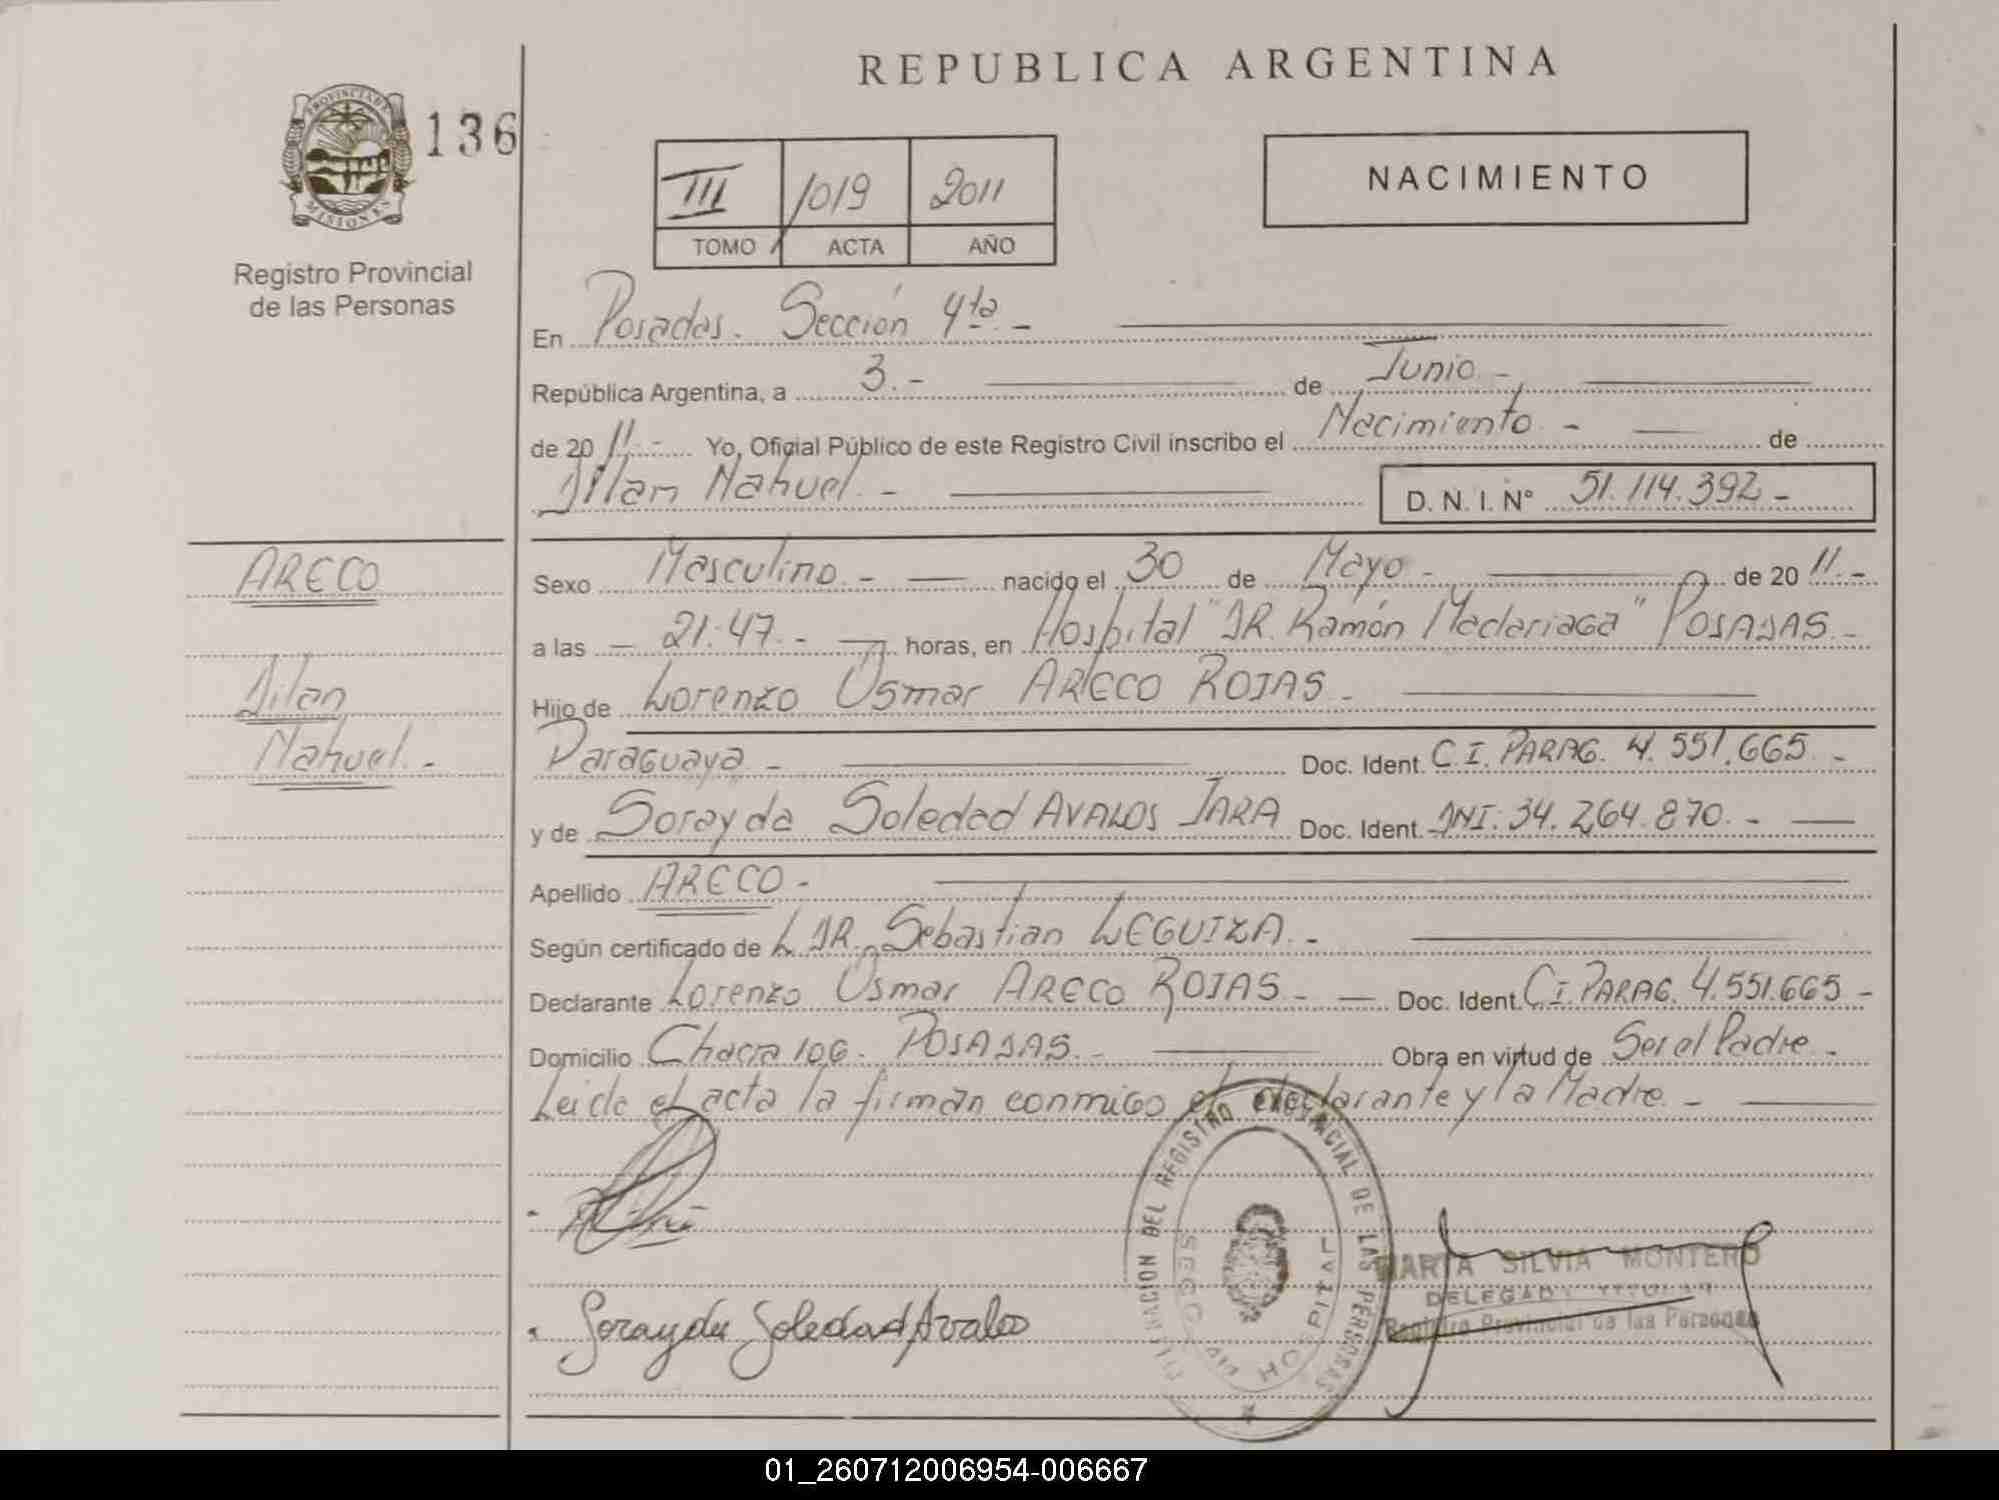 REPUBLICA ARGENTINA
PROVINCIA DE MISIONES
136
Registro Provincial
de las Personas
III 1019 2011
TOMO ACTA AÑO
NACIMIENTO
En Posadas. Sección 4ta.-
República Argentina, a 3.- de Junio.-
de 2011.- Yo, Oficial Público de este Registro Civil inscribo el Nacimiento - de
Dilan Nahuel.- D. N. I. N° 51.114.392-
ARECO
Dilan
Nahuel.-
Sexo Masculino.- nacido el 30 de Mayo.- de 2011.-
a las - 21:47.- horas, en Hospital "DR. Ramón Madariaga" POSADAS.-
Hijo de Lorenzo Osmar ARECO ROJAS.-
Paraguaya.- Doc. Ident. C.I. PARAG. 4.551.665.-
y de Sorayda Soledad AVALOS JARA Doc. Ident. DNI: 34.264.870.-
Apellido ARECO.-
Según certificado de DR. Sebastian LEGUIZA.-
Declarante Lorenzo Osmar ARECO ROJAS.- Doc. Ident. C.I. PARAG. 4.551.665-
Domicilio Chacra 106. POSADAS.- Obra en virtud de Ser el Padre.-
Leida el acta la firman conmigo el declarante y la Madre.-
Sorayda Soledad Avalos
DEL REGISTRO PROVINCIAL DE LAS PERSONAS
HOSPITAL
MARTA SILVIA MONTERO
DELEGADA TITULAR
Registro Provincial de las Personas
01_260712006954-006667